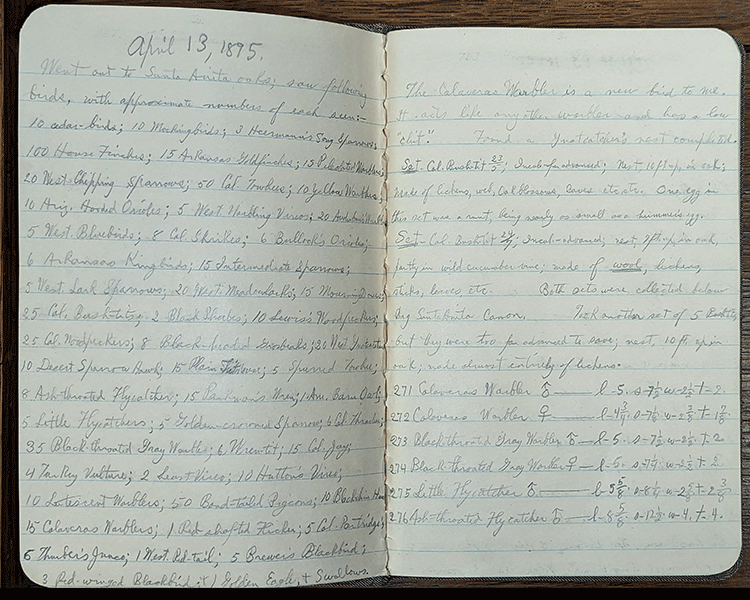 April 13, 1895.
Went out to Santa Anita oaks; saw following
birds, with approximate numbers of each seen:-
10 cedar-birds; 10 Mockingbirds; 3 Heermann's Song Sparrows;
100 House Finches; 15 Arkansas Goldfinches; 15 Pileolated Warblers;
20 West. Chipping Sparrows; 50 Cal. Towhees; 10 Yellow Warblers;
10 Ariz. Hooded Orioles; 5 West. Warbling Vireos; 20 Audubon's
5 West. Bluebirds; 8 Cal. Shrikes; 6 Bullock's Orioles;
6 Arkansas Kingbirds; 15 Intermediate Sparrows;
5 West. Lark Sparrows; 20 West. Meadowlarks; 15 Mourning Doves;
25 Cal. Bushtits; 2 Black Phoebes; 10 Lewis's Woodpeckers;
25 Cal. Woodpeckers; 8 Black-headed Grosbeaks; 20 West.
10 Desert Sparrow Hawk; 15 Plain Titmouse; 5 Spurred Towhee;
8 Ash-throated Flycatcher; 15 Parkman's Wren; 1 Am. Barn Owl;
5 Little Flycatchers; 5 Golden-crowned Sparrow; 6 Cal. Thrasher;
35 Black-throated Gray Warbler; 6 Wren-tit; 15 Cal. Jay;
4 Turkey Vulture; 2 Least Vireo; 10 Hutton's Vireo;
10 Lutescent Warblers; 50 Band-tailed Pigeons; 10 Blackchin
15 Calaveras Warblers; 1 Red-shafted Flicker; 5 Cal. Partridge;
6 Thurber's Junco; 1 West. Red-tail; 5 Brewer's Blackbird;
3 Red-winged Blackbird; 1 Golden Eagle, + Swallows.
The Calaveras Warbler is a new bird to me.
It acts like any other warbler and has a low
"chit." Found a Gnatcatcher's nest completed.
Set- Cal. Bushtit; Incub-far advanced; Nest, 10 ft up, in oak;
made of lichens, wool, Cal blossoms, leaves etc. etc. One egg in
this set was a runt, being nearly as small as a hummer's egg.
Set- Cal. Bushtit; Incub-advanced; nest, 7 ft up in oak,
partly in wild cucumber vine; made of wool, lichens,
sticks, leaves etc. Both sets were collected below
Big Santa Anita Canon. Took another set of 5 Bushtits,
but they were too far advanced to save; nest, 10 ft. up in
oak; made almost entirely of lichens.
271 Calaveras Warbler ♂ — l-5. s-7½ w-2½ t-2.
272 Calaveras Warbler ♀ — l-4¾
273 Blackthroated Gray Warbler ♂ — l-5. s-7½ w-2½ t-2.
274 Black throated Gray Warbler ♀ — l-5. s-7¼ w-2½ t-2.
275 Little Flycatcher ♂ — l-5⅝
276 Ash-throated Flycatcher ♂ — w-4. t-4.